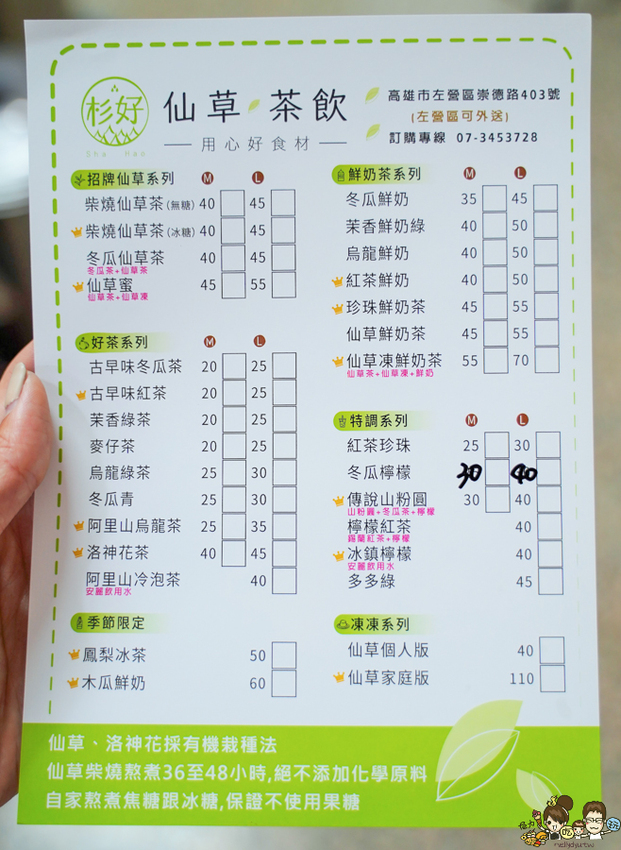 杉好
Sha Hao
仙草茶飲
用心好食材
高雄市左營區崇德路403號
(左營區可外送)
訂購專線 07-3453728
招牌仙草系列 M L
柴燒仙草茶(無糖) 40 45
柴燒仙草茶(冰糖) 40 45
冬瓜仙草茶 40 45
冬瓜茶+仙草茶
仙草蜜 45 55
仙草茶+仙草凍
好茶系列 M L
古早味冬瓜茶 20 25
古早味紅茶 20 25
茉香綠茶 20 25
麥仔茶 20 25
烏龍綠茶 25 30
冬瓜青 25 30
阿里山烏龍茶 25 35
洛神花茶 40 45
阿里山冷泡茶 40
安麗飲用水
季節限定
鳳梨冰茶 50
木瓜鮮奶 60
鮮奶茶系列 M L
冬瓜鮮奶 35 45
茉香鮮奶綠 40 50
烏龍鮮奶 40 50
紅茶鮮奶 40 50
珍珠鮮奶茶 45 55
仙草鮮奶茶 45 55
仙草凍鮮奶茶 55 70
仙草茶+仙草凍+鮮奶
特調系列 M L
紅茶珍珠 25 30
冬瓜檸檬 30 40
傳說山粉圓 30 40
山粉圓+冬瓜茶+檸檬
檸檬紅茶 40
錫蘭紅茶+檸檬
冰鎮檸檬 40
安麗飲用水
多多綠 45
凍凍系列
仙草個人版 40
仙草家庭版 110
仙草、洛神花採有機栽種法
仙草柴燒熬煮36至48小時,絕不添加化學原料
自家熬煮焦糖跟冰糖,保證不使用果糖
nellydyu.tw